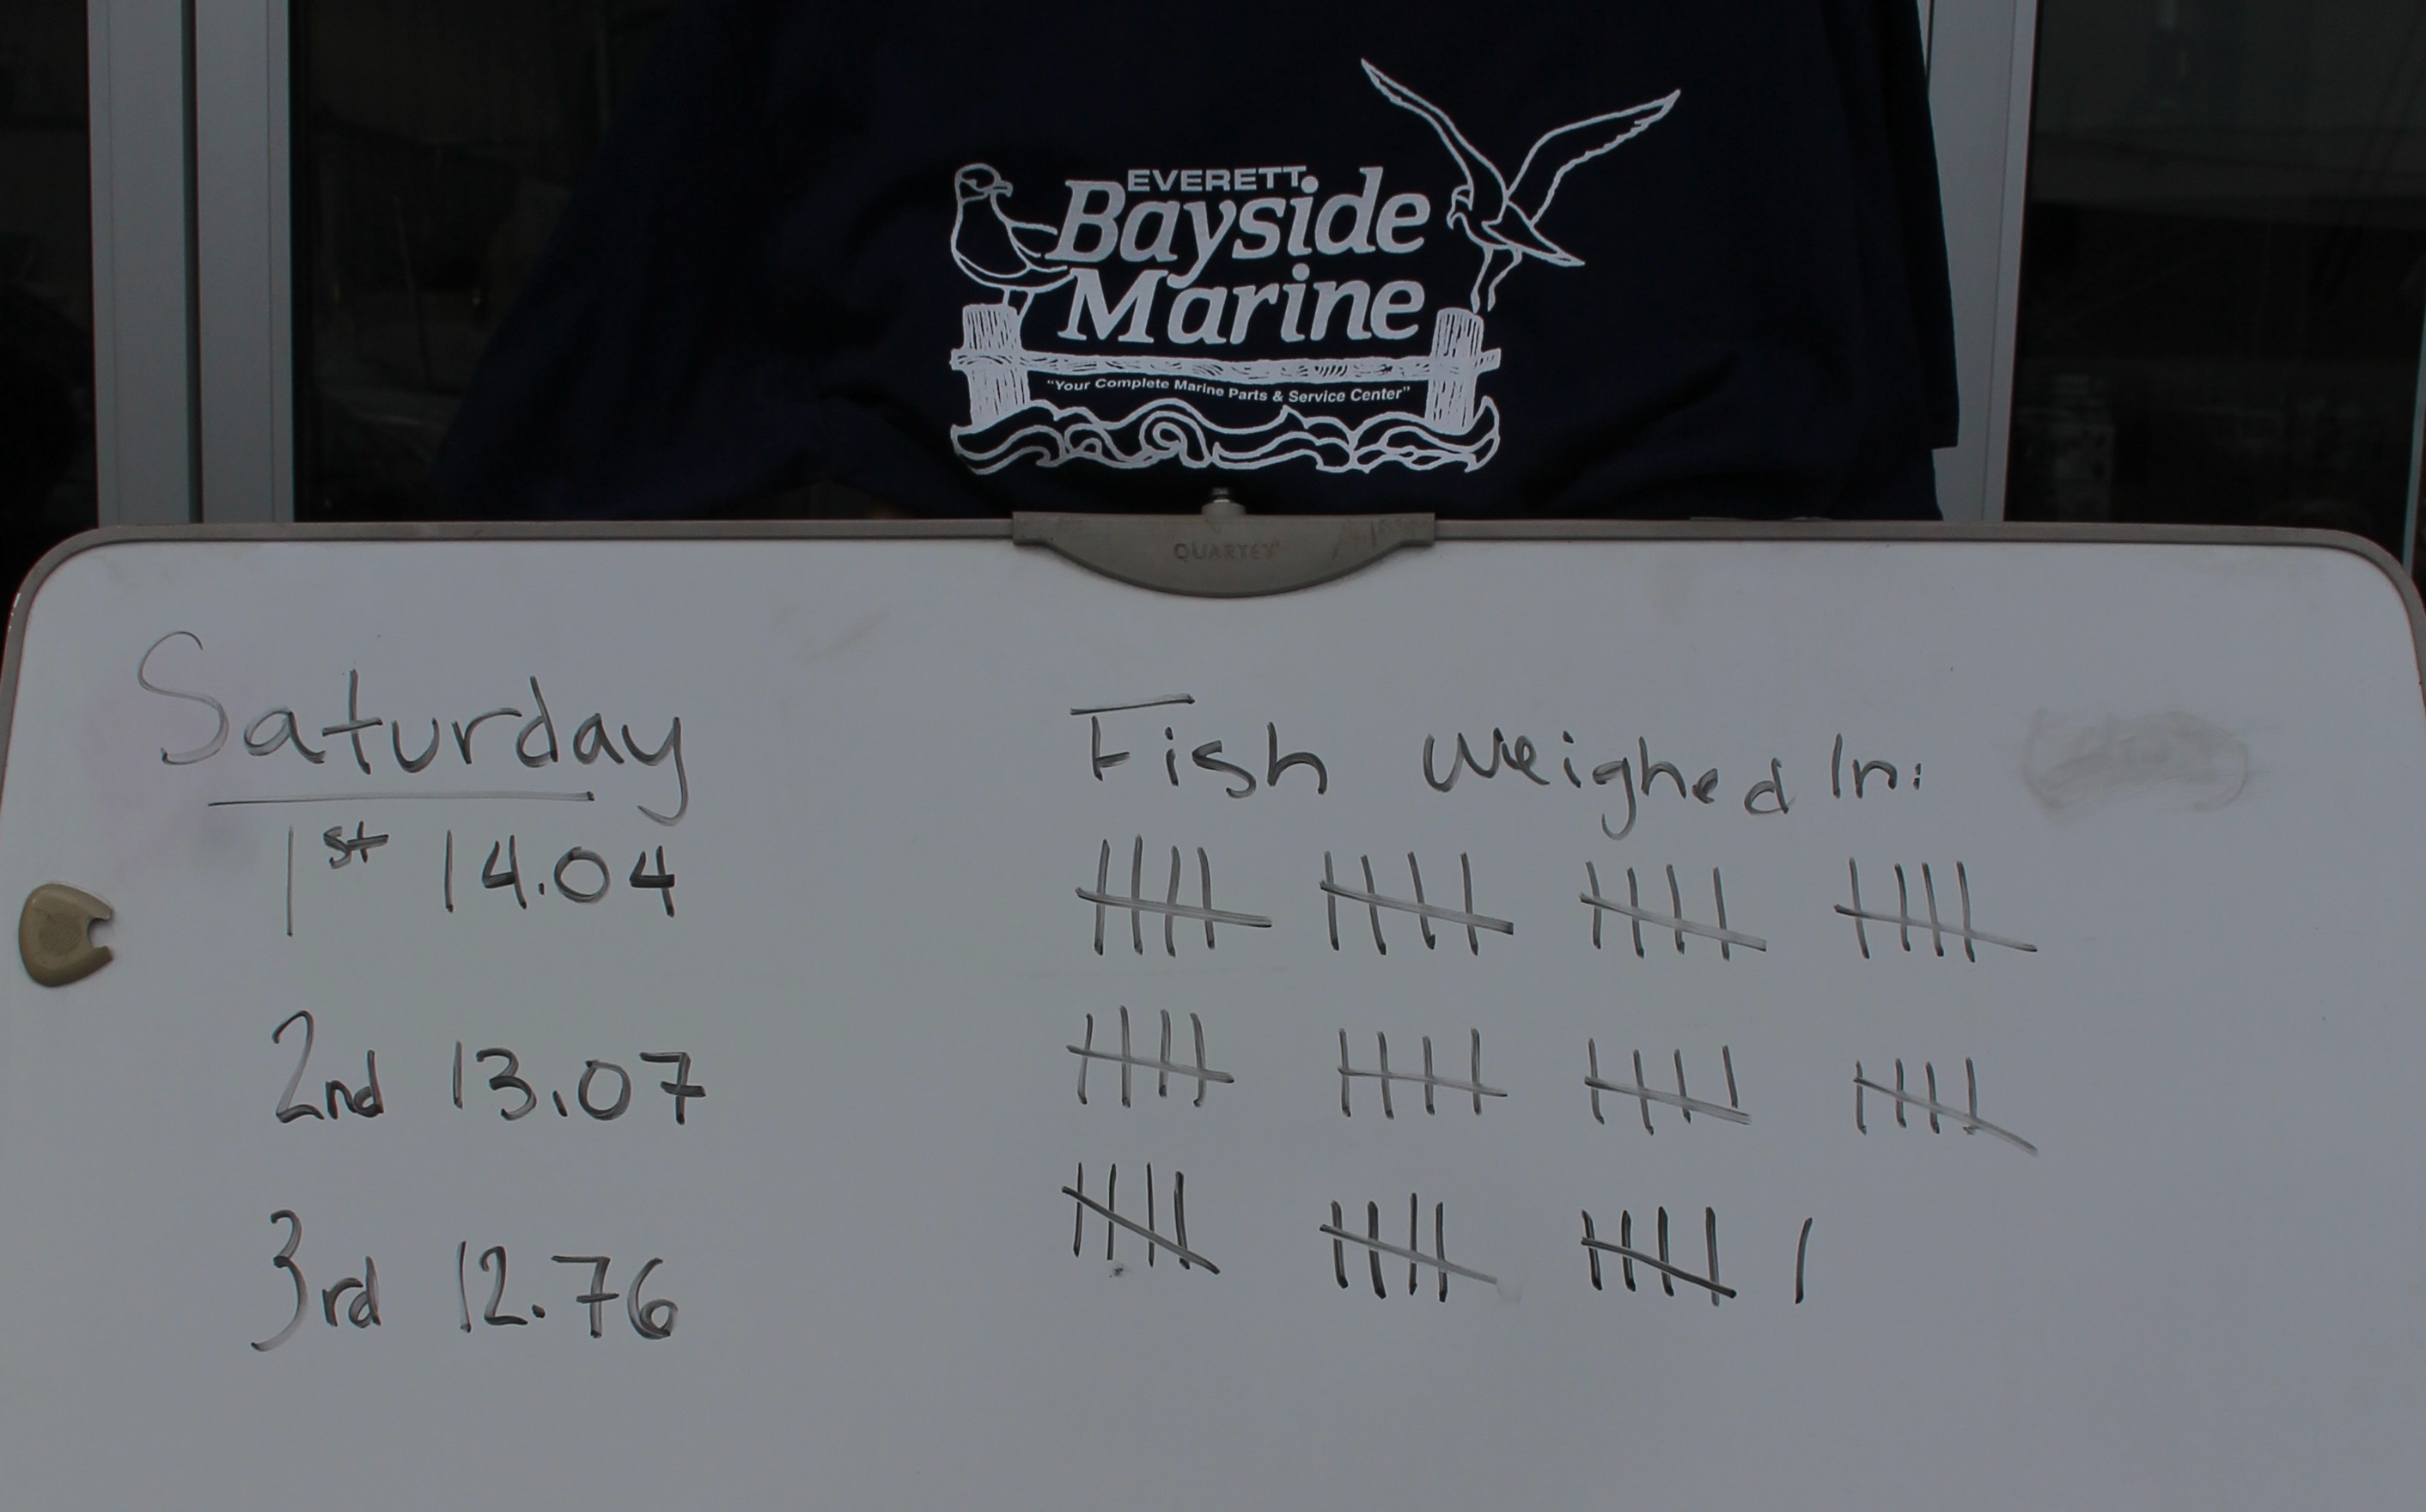 EVERETT
Bayside
Marine
"Your Complete Marine Parts & Service Center"
QUARTET
Saturday
1st 14.04
2nd 13.07
3rd 12.76
Fish Weighed In: